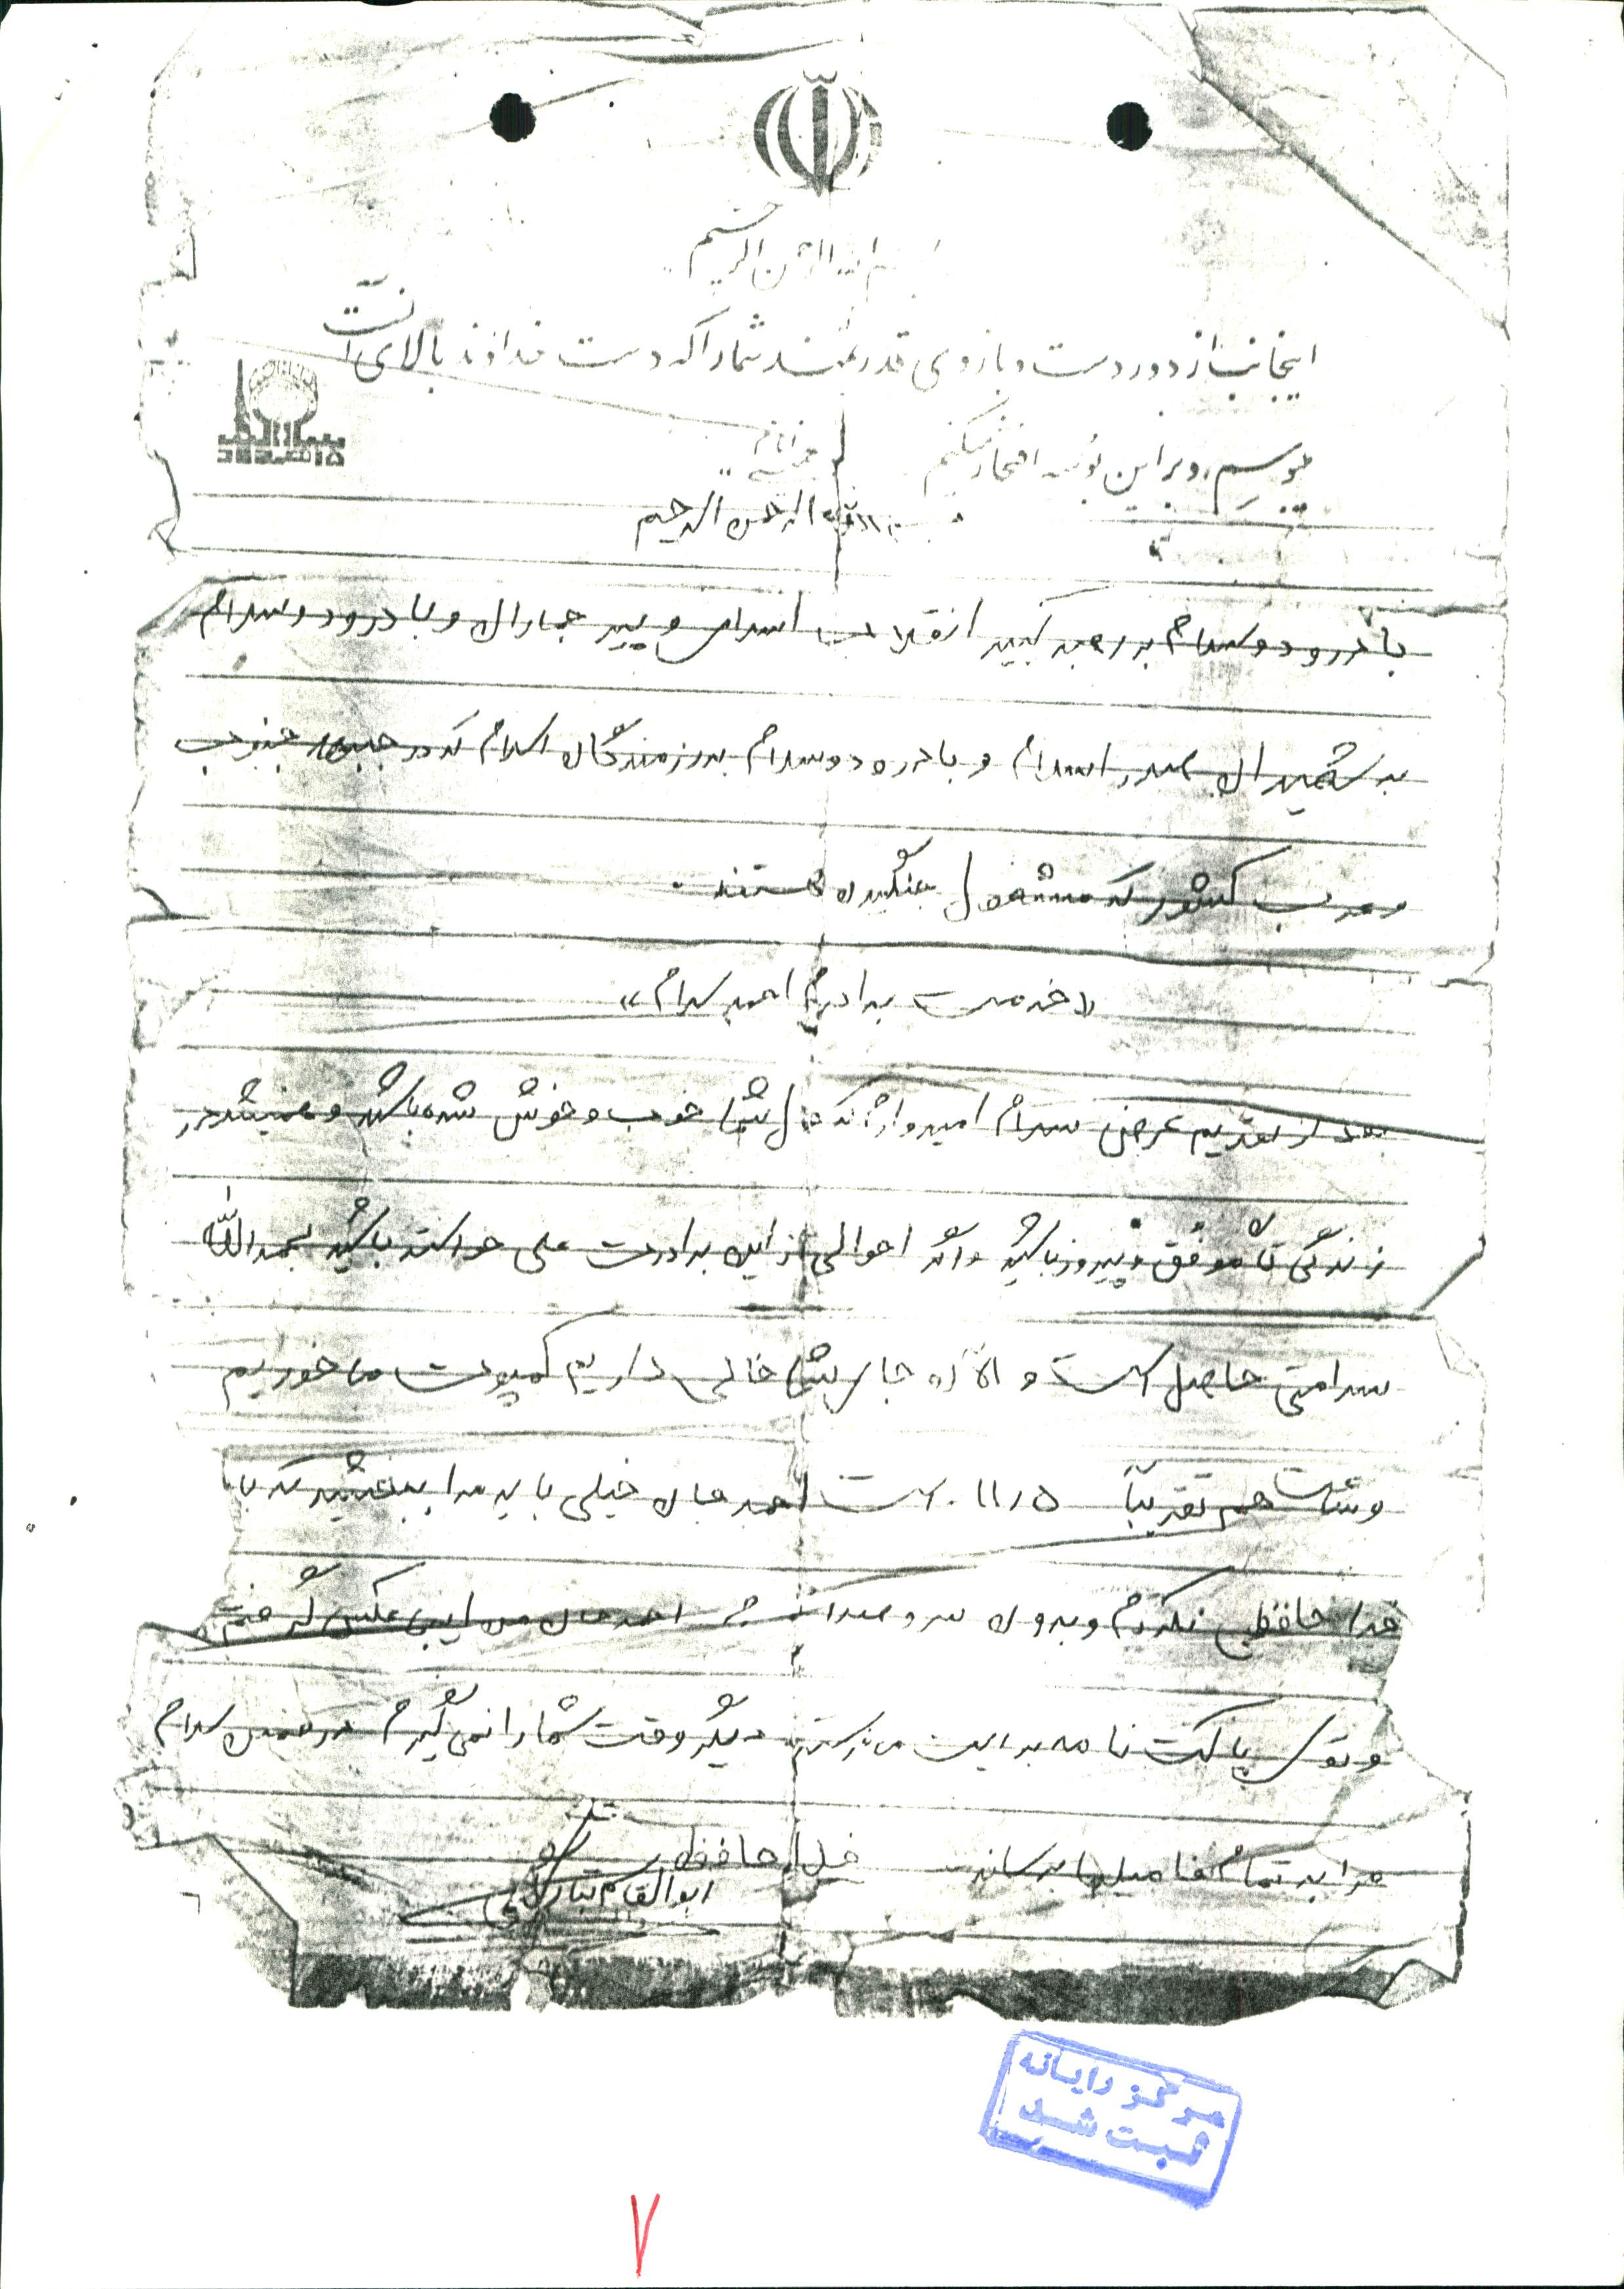 بسم الله الرحمن الرحیم
اینجانب از دور دست و بازوی قدرتمند شما را که دست خداوند بالای آنست
میبوسم و بر این بوسه افتخار میکنم
امام خمینی
بسم الله الرحمن الرحیم
با درود و سلام به رهبر کبیر انقلاب اسلامی و پیر جماران و با درود و سلام
به شهیدان صدر اسلام و با درود و سلام به رزمندگان اسلام که در جبهه جنوب
و غرب کشور که مشغول جنگیدن هستند.
«خدمت برادرم احمد سلام»
بعد از تقدیم عرض سلام امیدوارم که حال شما خوب و خوش شده باشد و همیشه در
زندگی تان موفق و پیروز باشید و اگر احوالی از این برادرت علی خواسته باشید بحمدالله
سلامتی حاصل است و الآن جای شما خالی داریم کمپوت می خوریم
و ساعت هم تقریباً ۱۱/۵ است احمد جان خیلی باید مرا ببخشید که با
خدا حافظی نکردم و بدون سر و صدا احمد جان من این عکس گرفتم
و توی پاکت نامه برایت می فرستم دیگر وقت شما را نمی گیرم در ضمن سلام
مرا به تمام فامیلها برسانید خدا حافظ
ابوالقاسم
مرکز رایانه
ثبت شد
۷